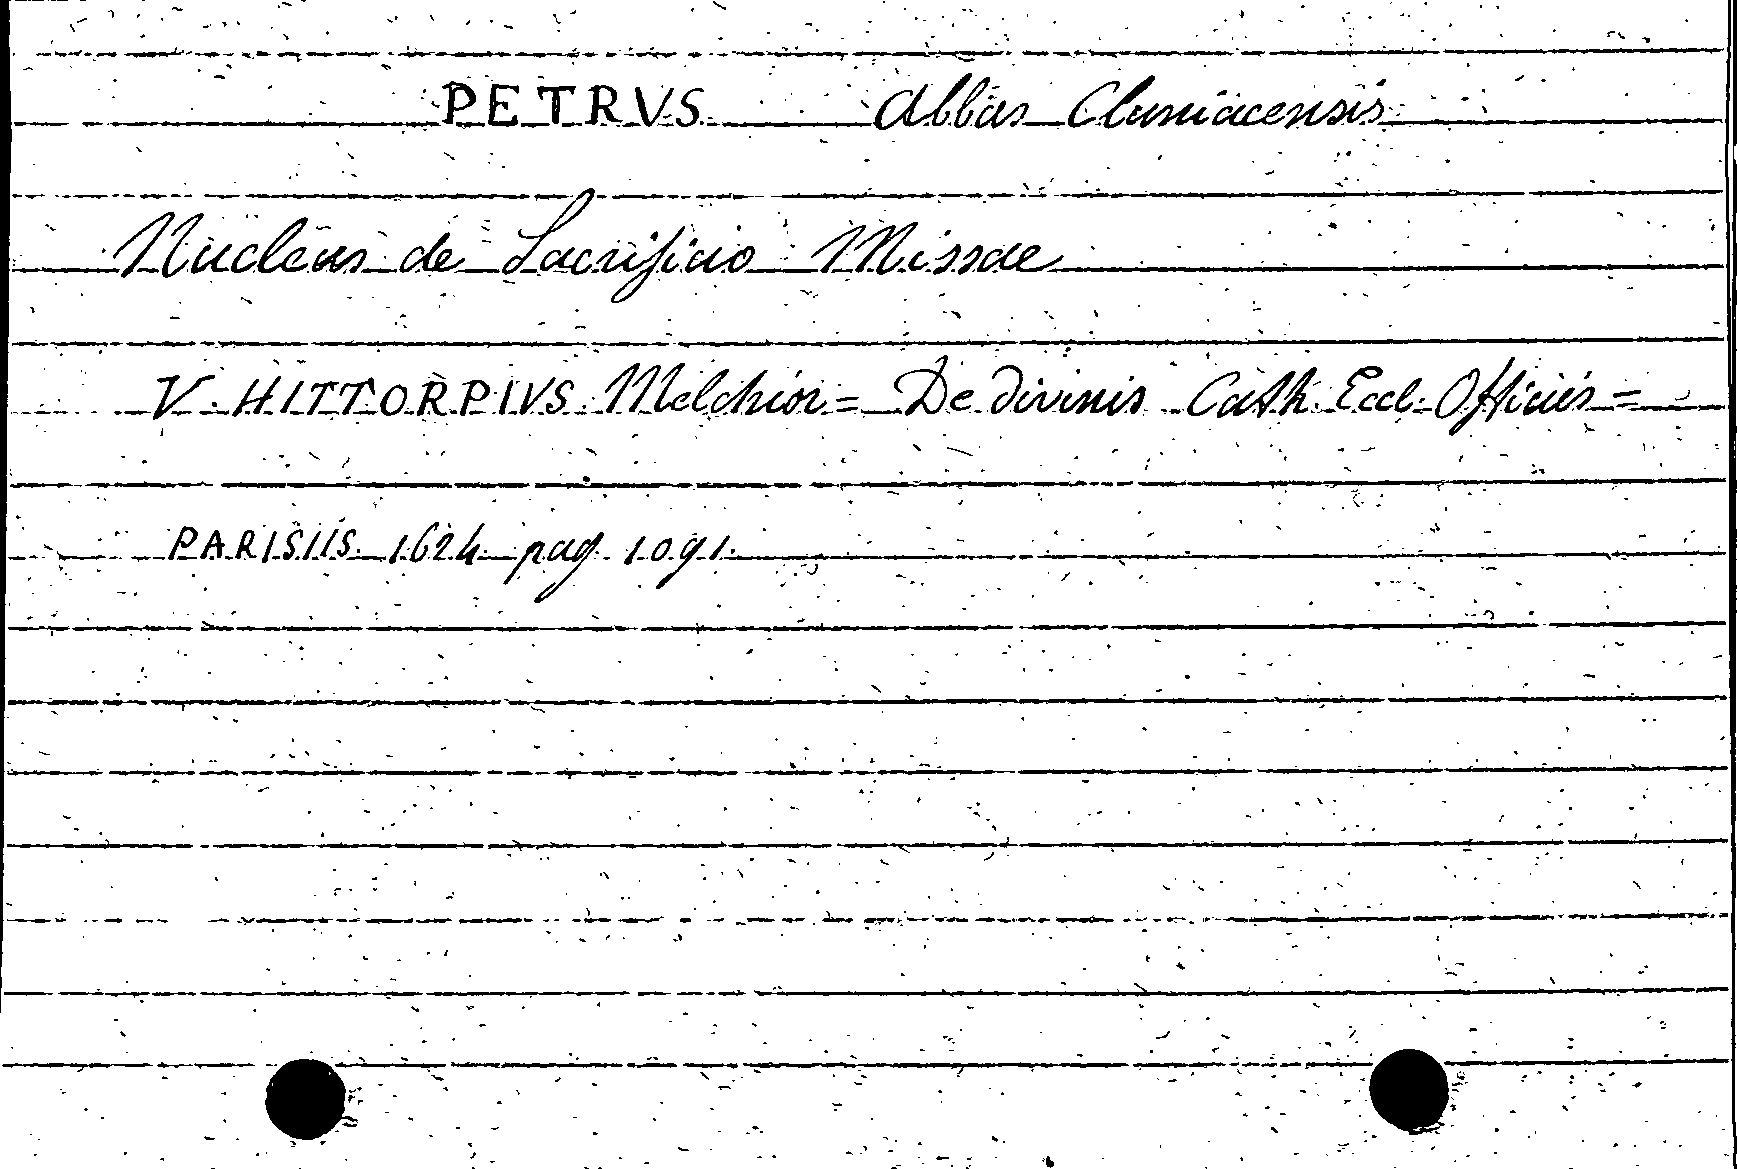 PETRVS Abbas Cluniacensis
Nucleus de Sacrificio Missae
V. HITTORPIVS Melchior = De Divinis Cath. Eccl. Officiis =
PARISIIS 1624 pag. 1091.